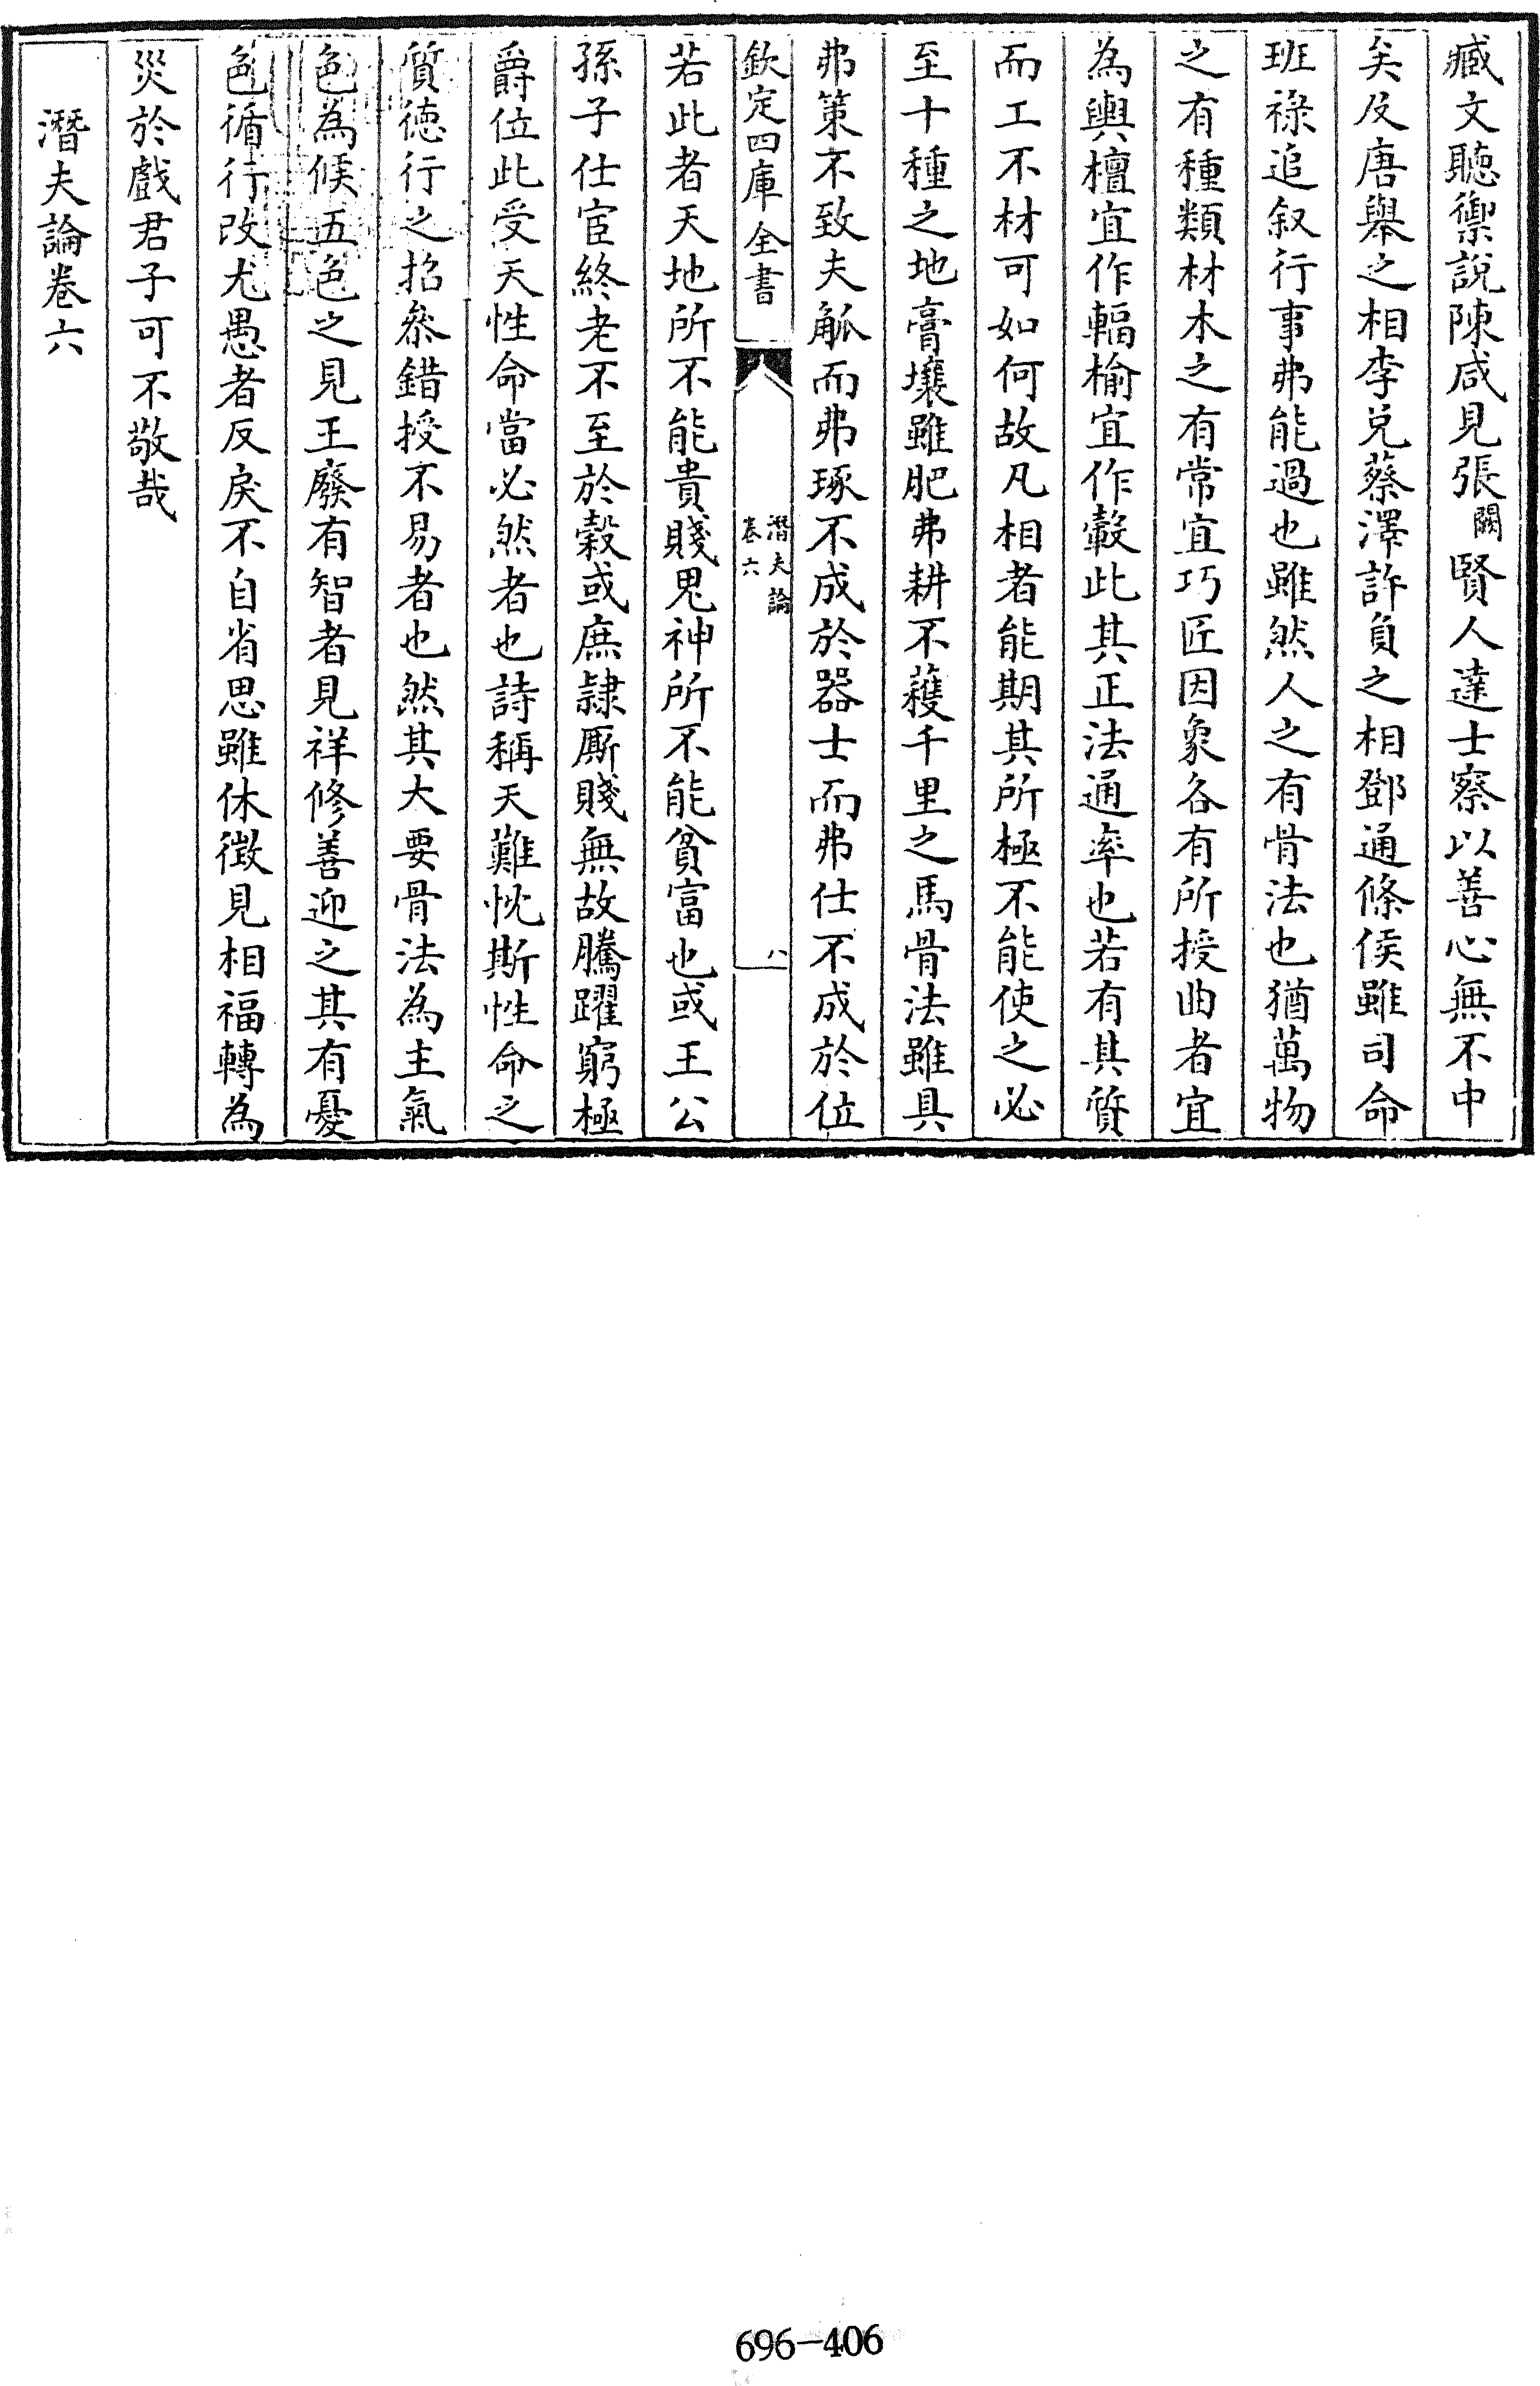 臧文聽禦說陳咸見張闕賢人達士察以善心無不中
矣及唐舉之相李兌蔡澤許負之相鄧通條侯雖司命
班祿追叙行事弗能過也雖然人之有骨法也猶萬物
之有種類材木之有常宜巧匠因象各有所授曲者宜
為輿檀宜作輻榆宜作轂此其正法通率也若有其質
而工不材可如何故凡相者能期其所極不能使之必
至十種之地膏壤雖肥弗耕不穫千里之馬骨法雖具
弗策不致夫觚而弗琢不成於器士而弗仕不成於位
欽定四庫全書
潛夫論
卷六
八
若此者天地所不能貴賤鬼神所不能貧富也或王公
孫子仕宦終老不至於穀或庶隷厮賤無故騰躍窮極
爵位此受天性命當必然者也詩稱天難忱斯性命之
質德行之招叅錯授不易者也然其大要骨法為主氣
色為候五色之見王廢有智者見祥修善迎之其有憂
色循行改尤愚者反戾不自省思雖休徴見相福轉為
災於戲君子可不敬哉
潛夫論卷六
696-406